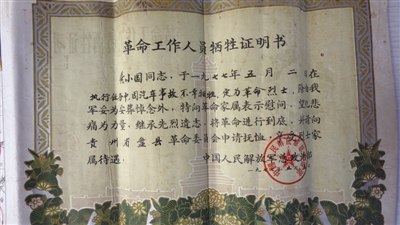 革命工作人员牺牲证明书
小国同志，于一九七七年五月二日在
执行任务中因汽车事故不幸牺牲，定为革命烈士，除
军妥为安葬悼念外，特向革命家属表示慰问，望化悲
痛为力量，继承先烈遗志，将革命进行到底，并持向
贵州省盘县革命委员会申请抚恤，享受烈士家
属待遇。
中国人民解放军
一九七